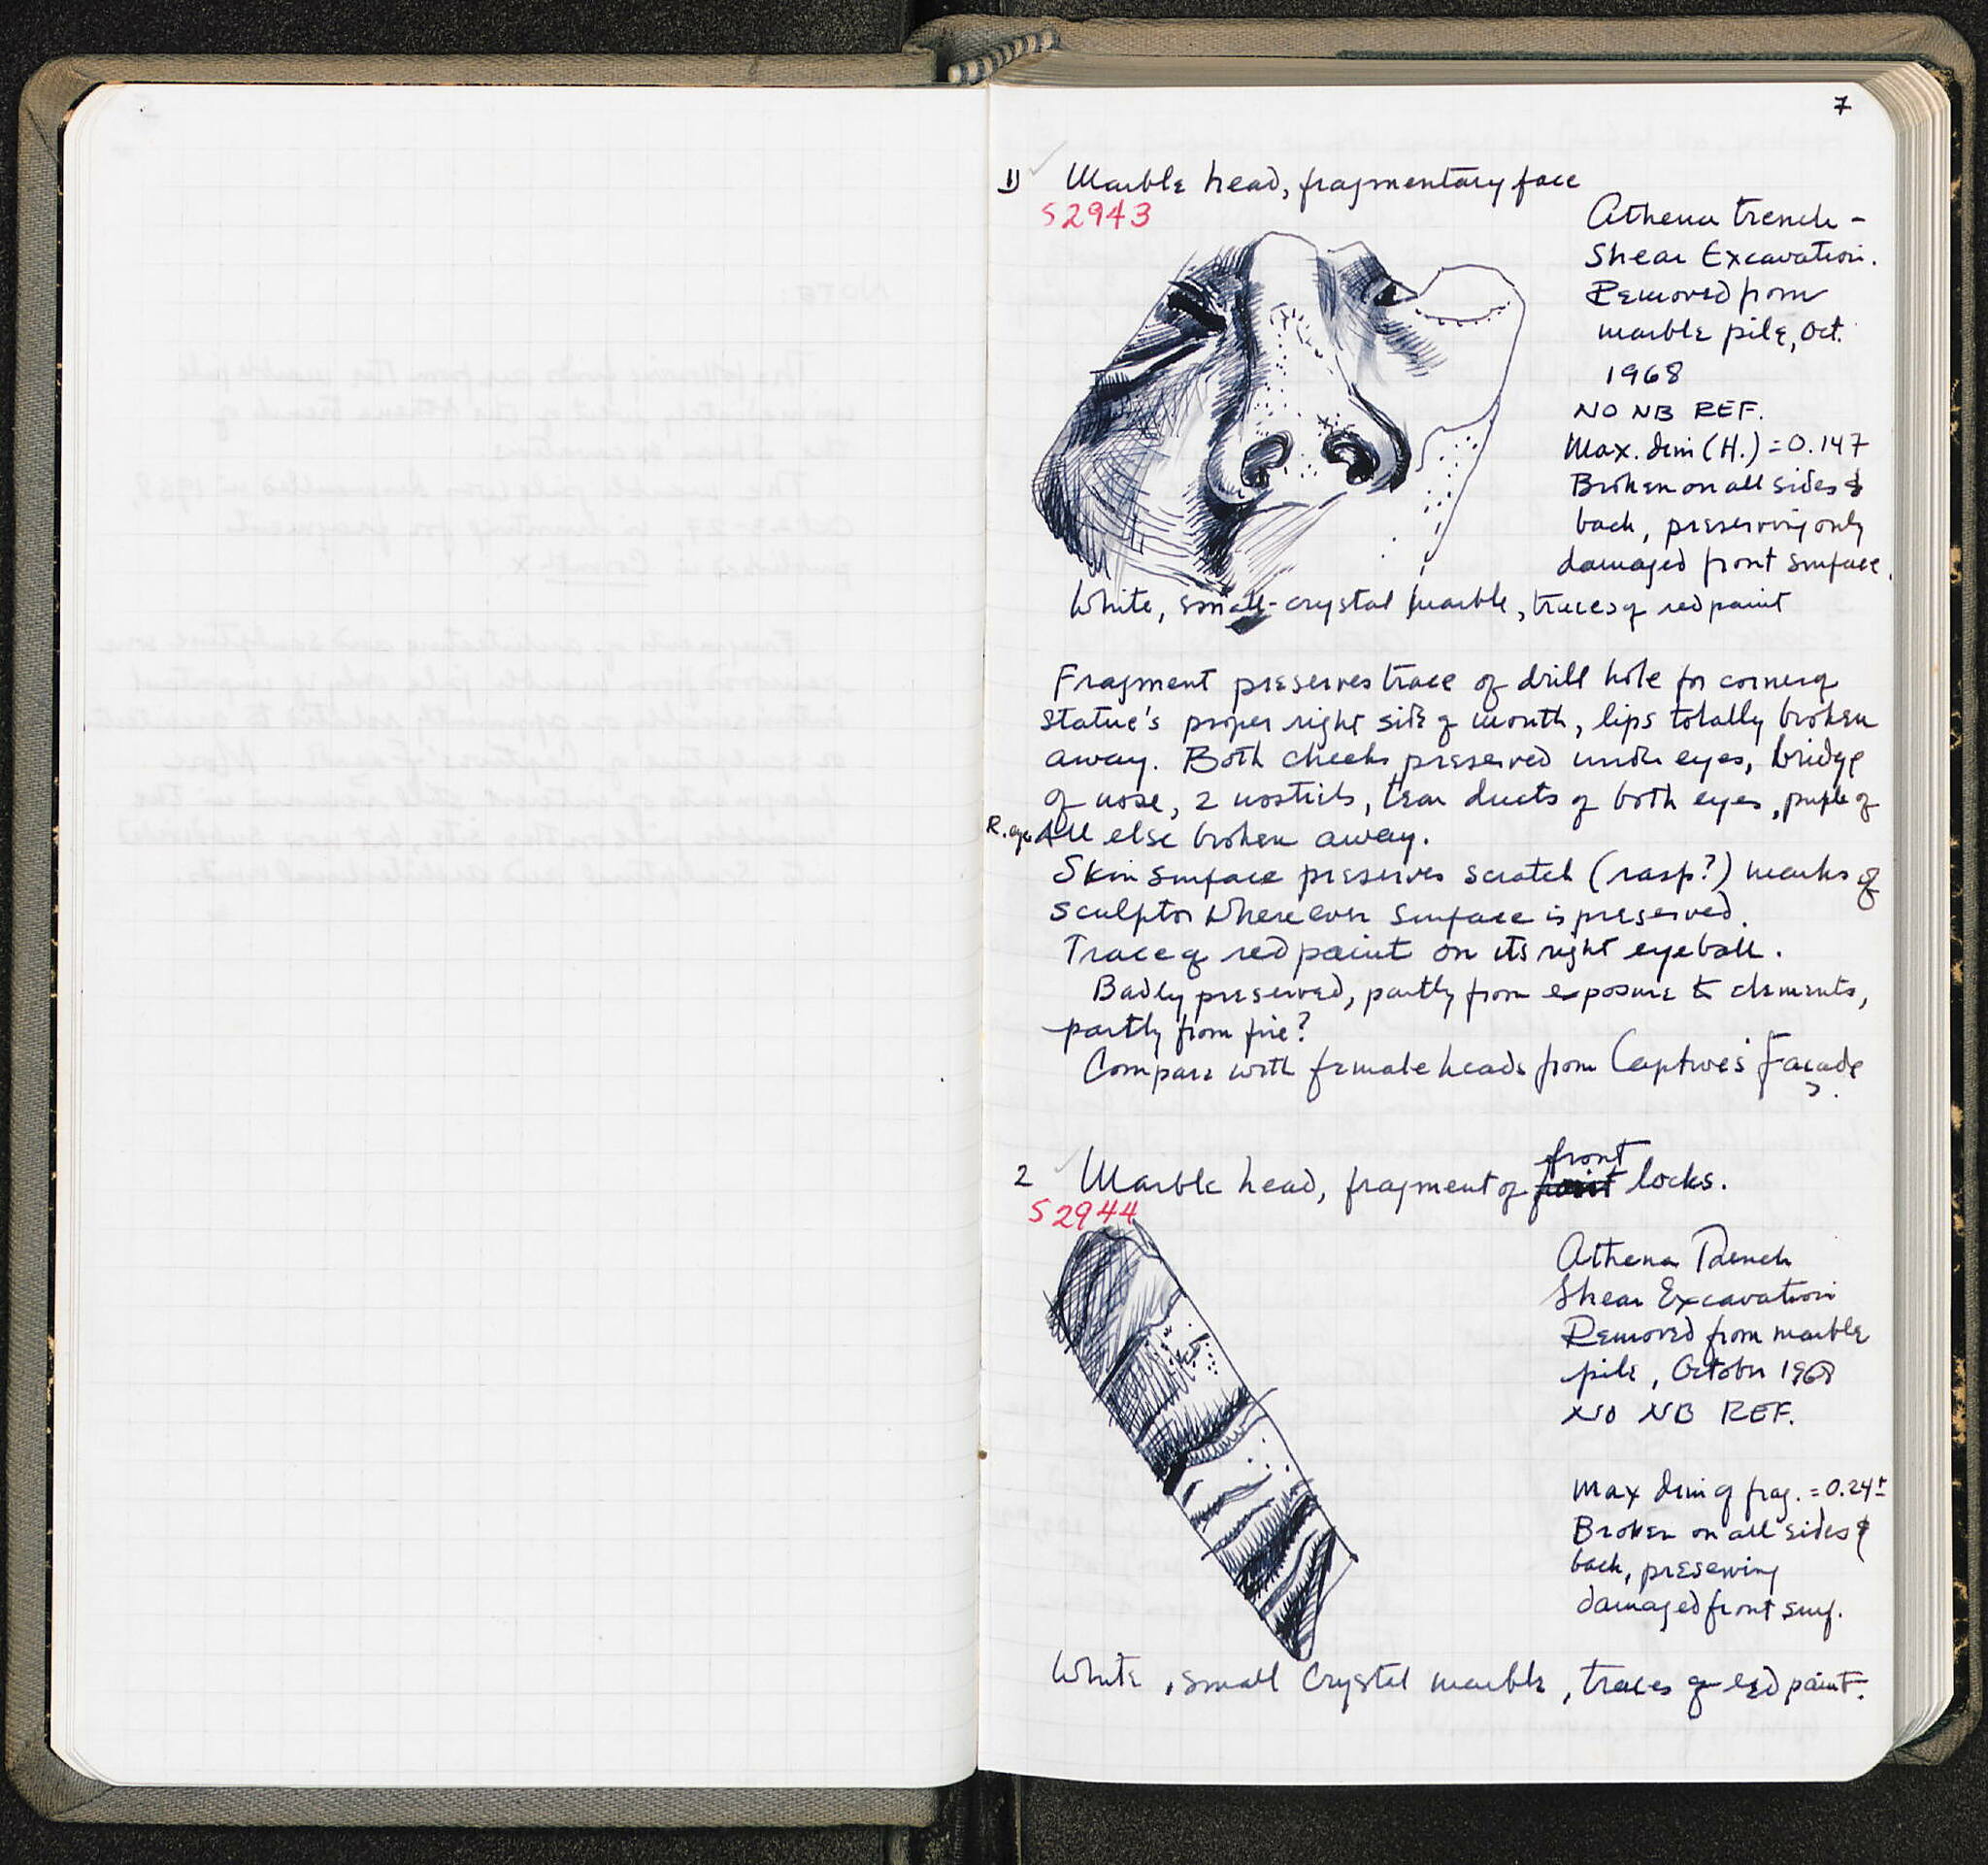 7
1) Marble head, fragmentary face
S2943
Athena trench -
Shear Excavation.
Removed from
marble pile, Oct.
1968
NO NB REF.
Max. dim (H.) = 0.147
Broken on all sides &
back, preserving only
damaged front surface.
White, small-crystal marble, traces of red paint
Fragment preserves trace of drill hole for corner of
statue's proper right side of mouth, lips totally broken
away. Both cheeks preserved under eyes, bridge
of nose, 2 nostrils, tear ducts of both eyes, puple of
R. eye. All else broken away.
Skin surface preserves scratch (rasp?) marks of
sculptor where ever surface is preserved.
Trace of red paint on its right eyeball.
Badly preserved, partly from exposure to elements,
partly from fire?
Compare with female heads from Captives' Façade
?.
2 Marble head, fragment of front locks.
S2944
Athena Trench
Shear Excavation
Removed from marble
pile, October 1968
NO NB REF.
Max dim of frag. = 0.24±
Broken on all sides &
back, preserving
damaged front surf.
White, small crystal marble, traces of red paint.